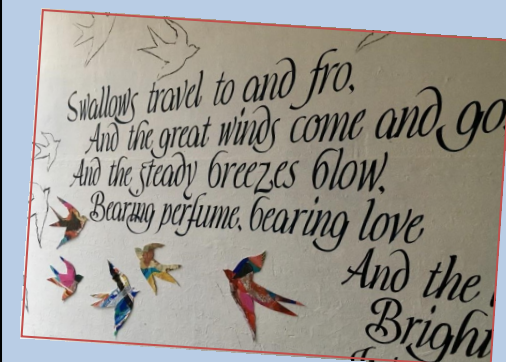 Swallows travel to and fro,
And the great winds come and go
And the steady breezes blow,
Bearing perfume, bearing love
And the